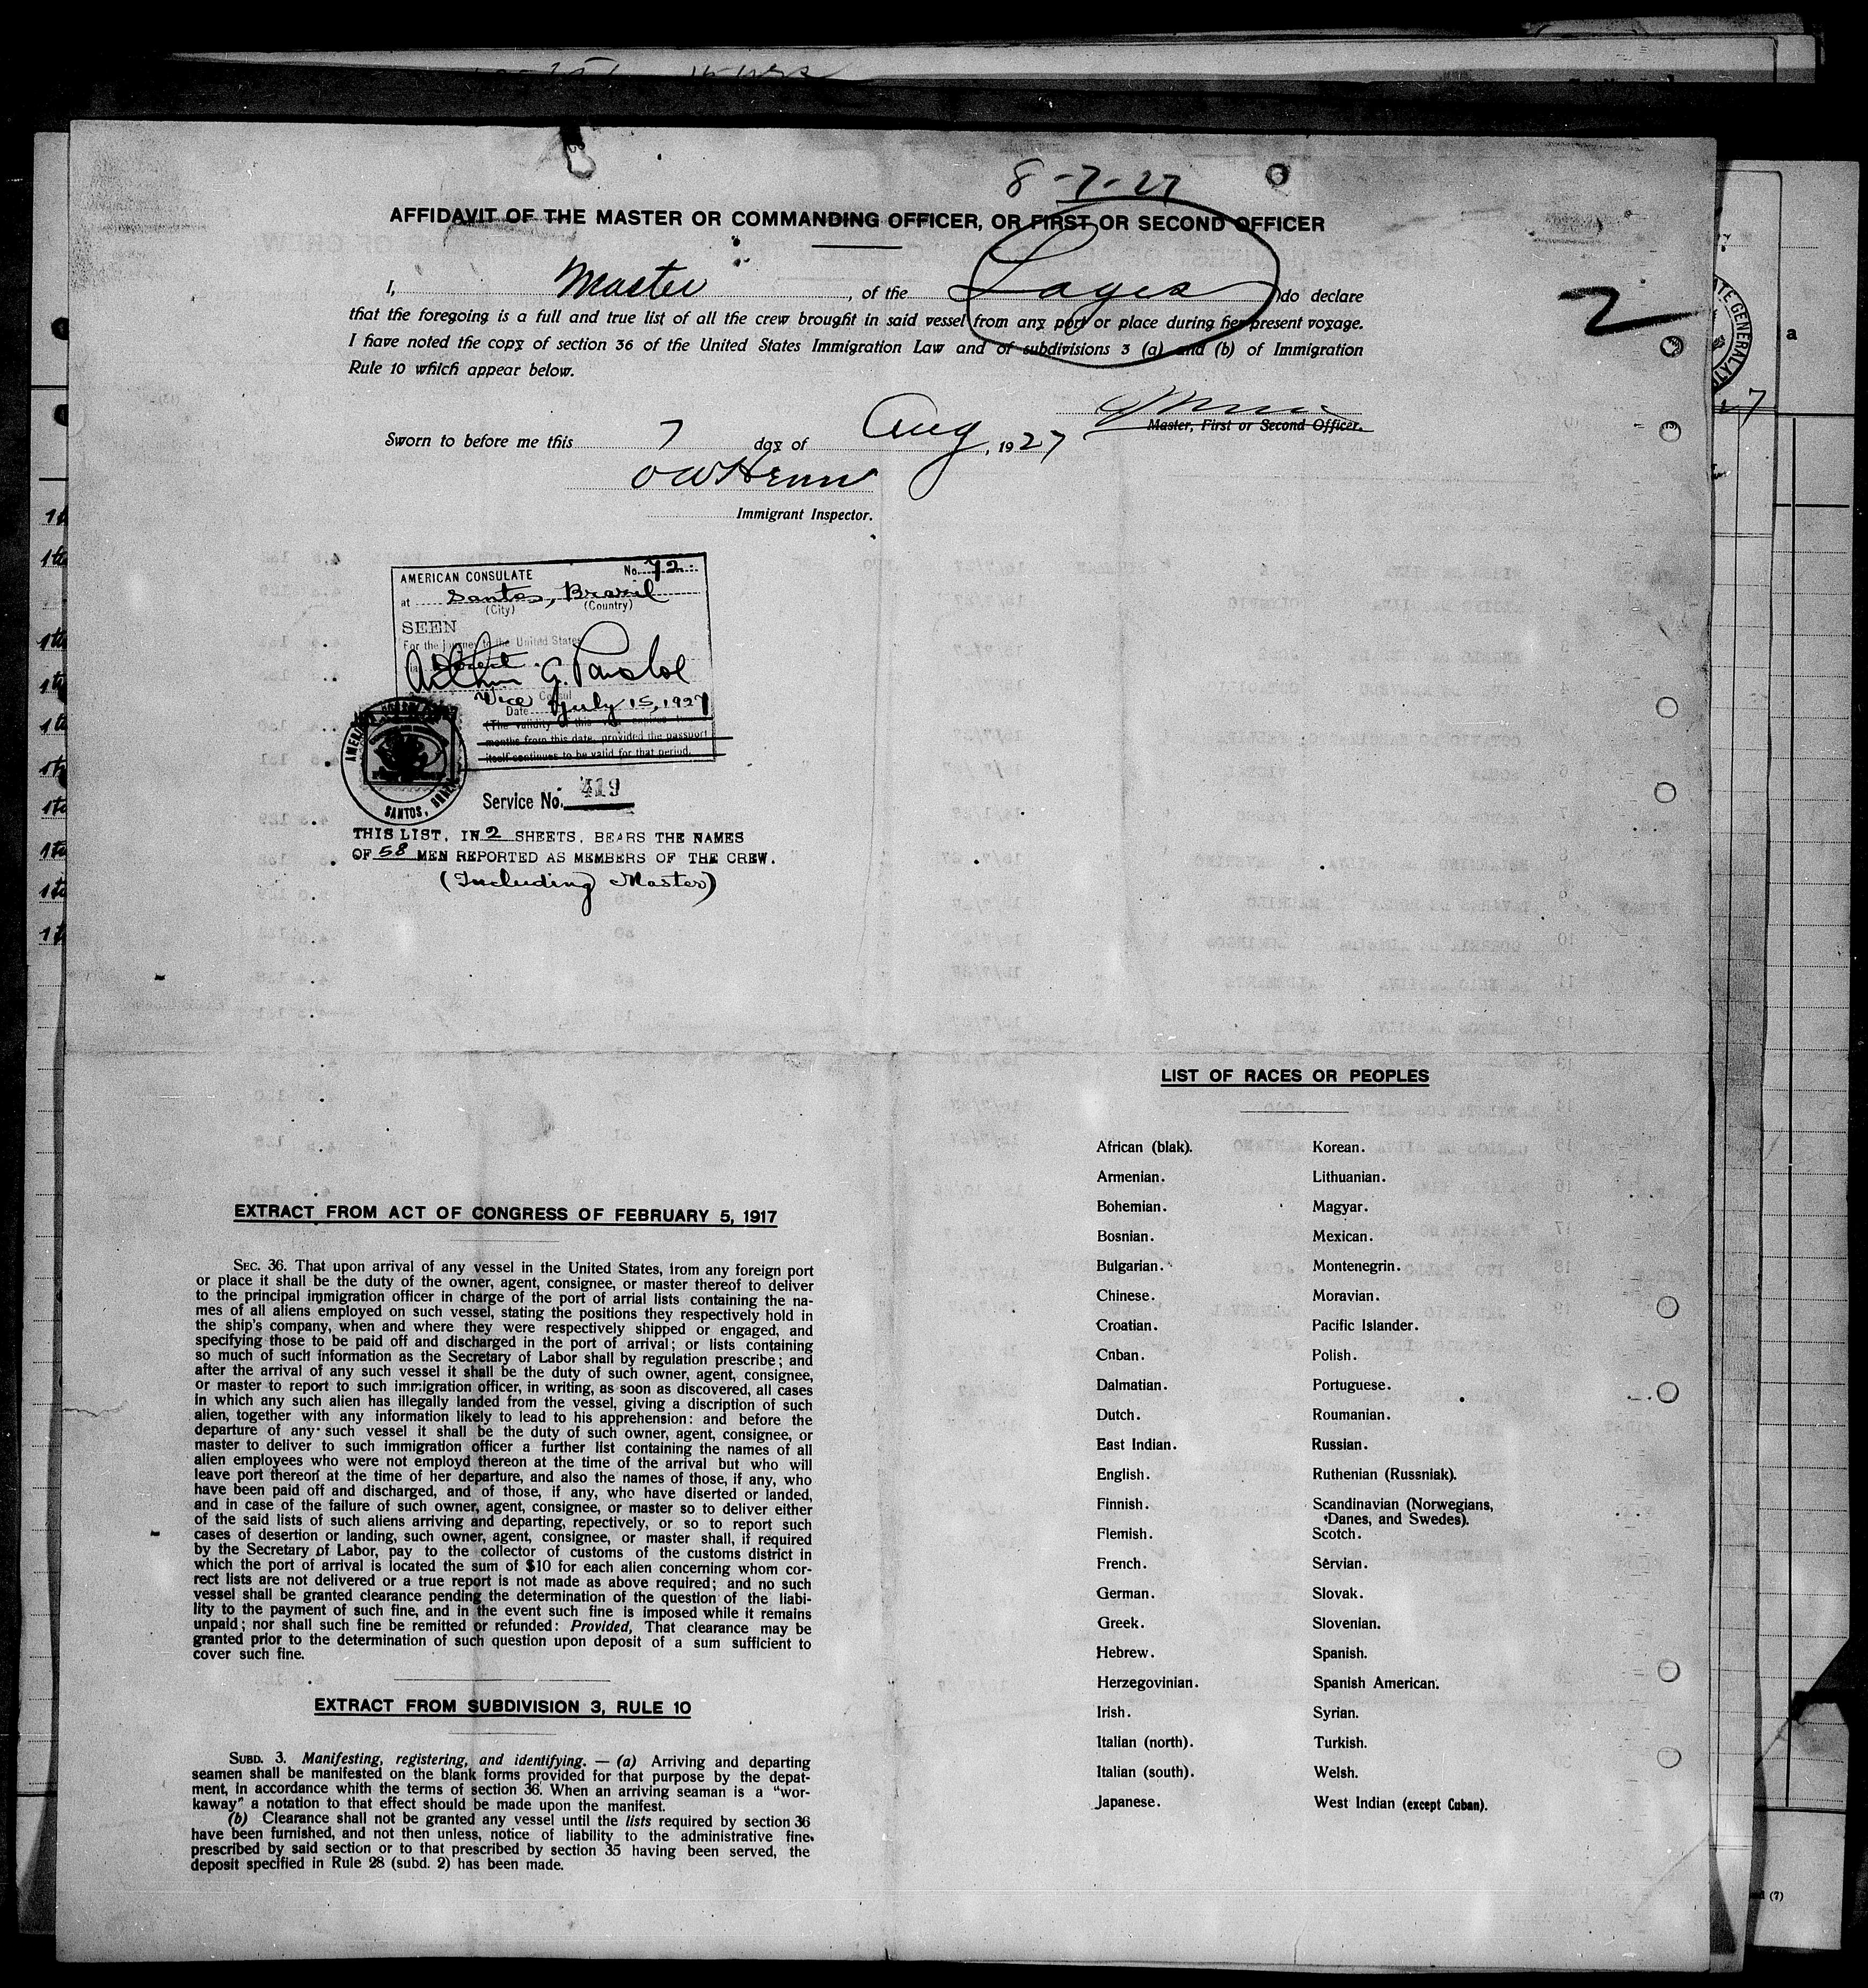 8-7-27
AFFIDAVIT OF THE MASTER OR COMMANDING OFFICER, OR FIRST OR SECOND OFFICER
I, Master, of the Lages do declare
that the foregoing is a full and true list of all the crew brought in said vessel from any port or place during her present voyage.
I have noted the copy of section 36 of the United States Immigration Law and of subdivisions 3 (a) and (b) of Immigration
Rule 10 which appear below.
2
Master, First or Second Officer.
Sworn to before me this 7 day of Aug, 1927
Immigrant Inspector.
AMERICAN CONSULATE No. 72
at Santos, Brazil
(City) (Country)
SEEN
For the journey to the United States
Arthur G.
Vice Consul
Date July 15, 1927
(The validity of this visa expires
months from this date, provided the passport
itself continues to be valid for that period.
SANTOS, BRAZIL
Service No. 419
THIS LIST, IN 2 SHEETS, BEARS THE NAMES
OF 58 MEN REPORTED AS MEMBERS OF THE CREW.
(Including Master)
EXTRACT FROM ACT OF CONGRESS OF FEBRUARY 5, 1917
SEC. 36. That upon arrival of any vessel in the United States, from any foreign port
or place it shall be the duty of the owner, agent, consignee, or master thereof to deliver
to the principal immigration officer in charge of the port of arrial lists containing the na-
mes of all aliens employed on such vessel, stating the positions they respectively hold in
the ship's company, when and where they were respectively shipped or engaged, and
specifying those to be paid off and discharged in the port of arrival; or lists containing
so much of such information as the Secretary of Labor shall by regulation prescribe; and
after the arrival of any such vessel it shall be the duty of such owner, agent, consignee,
or master to report to such immigration officer, in writing, as soon as discovered, all cases
in which any such alien has illegally landed from the vessel, giving a discription of such
alien, together with any information likely to lead to his apprehension: and before the
departure of any such vessel it shall be the duty of such owner, agent, consignee, or
master to deliver to such immigration officer a further list containing the names of all
alien employees who were not employd thereon at the time of the arrival but who will
leave port thereon at the time of her departure, and also the names of those, if any, who
have been paid off and discharged, and of those, if any, who have diserted or landed,
and in case of the failure of such owner, agent, consignee, or master so to deliver either
of the said lists of such aliens arriving and departing, repectively, or so to report such
cases of desertion or landing, such owner, agent, consignee, or master shall, if required
by the Secretary of Labor, pay to the collector of customs of the customs district in
which the port of arrival is located the sum of $10 for each alien concerning whom cor-
rect lists are not delivered or a true report is not made as above required; and no such
vessel shall be granted clearance pending the determination of the question of the liabi-
lity to the payment of such fine, and in the event such fine is imposed while it remains
unpaid; nor shall such fine be remitted or refunded: Provided, That clearance may be
granted prior to the determination of such question upon deposit of a sum sufficient to
cover such fine.
EXTRACT FROM SUBDIVISION 3, RULE 10
SUBD. 3. Manifesting, registering, and identifying. — (a) Arriving and departing
seamen shall be manifested on the blank forms provided for that purpose by the depat-
ment, in accordance whith the terms of section 36. When an arriving seaman is a "wor-
kaway" a notation to that effect should be made upon the manifest.
(b) Clearance shall not be granted any vessel until the lists required by section 36
have been furnished, and not then unless, notice of liability to the administrative fine,
prescribed by said section or to that prescribed by section 35 having been served, the
deposit specified in Rule 28 (subd. 2) has been made.
LIST OF RACES OR PEOPLES
African (blak).
Armenian.
Bohemian.
Bosnian.
Bulgarian.
Chinese.
Croatian.
Cnban.
Dalmatian.
Dutch.
East Indian.
English.
Finnish.
Flemish.
French.
German.
Greek.
Hebrew.
Herzegovinian.
Irish.
Italian (north).
Italian (south).
Japanese.
Korean.
Lithuanian.
Magyar.
Mexican.
Montenegrin.
Moravian.
Pacific Islander.
Polish.
Portuguese.
Roumanian.
Russian.
Ruthenian (Russniak).
Scandinavian (Norwegians,
Danes, and Swedes).
Scotch.
Servian.
Slovak.
Slovenian.
Spanish.
Spanish American.
Syrian.
Turkish.
Welsh.
West Indian (except Cuban).